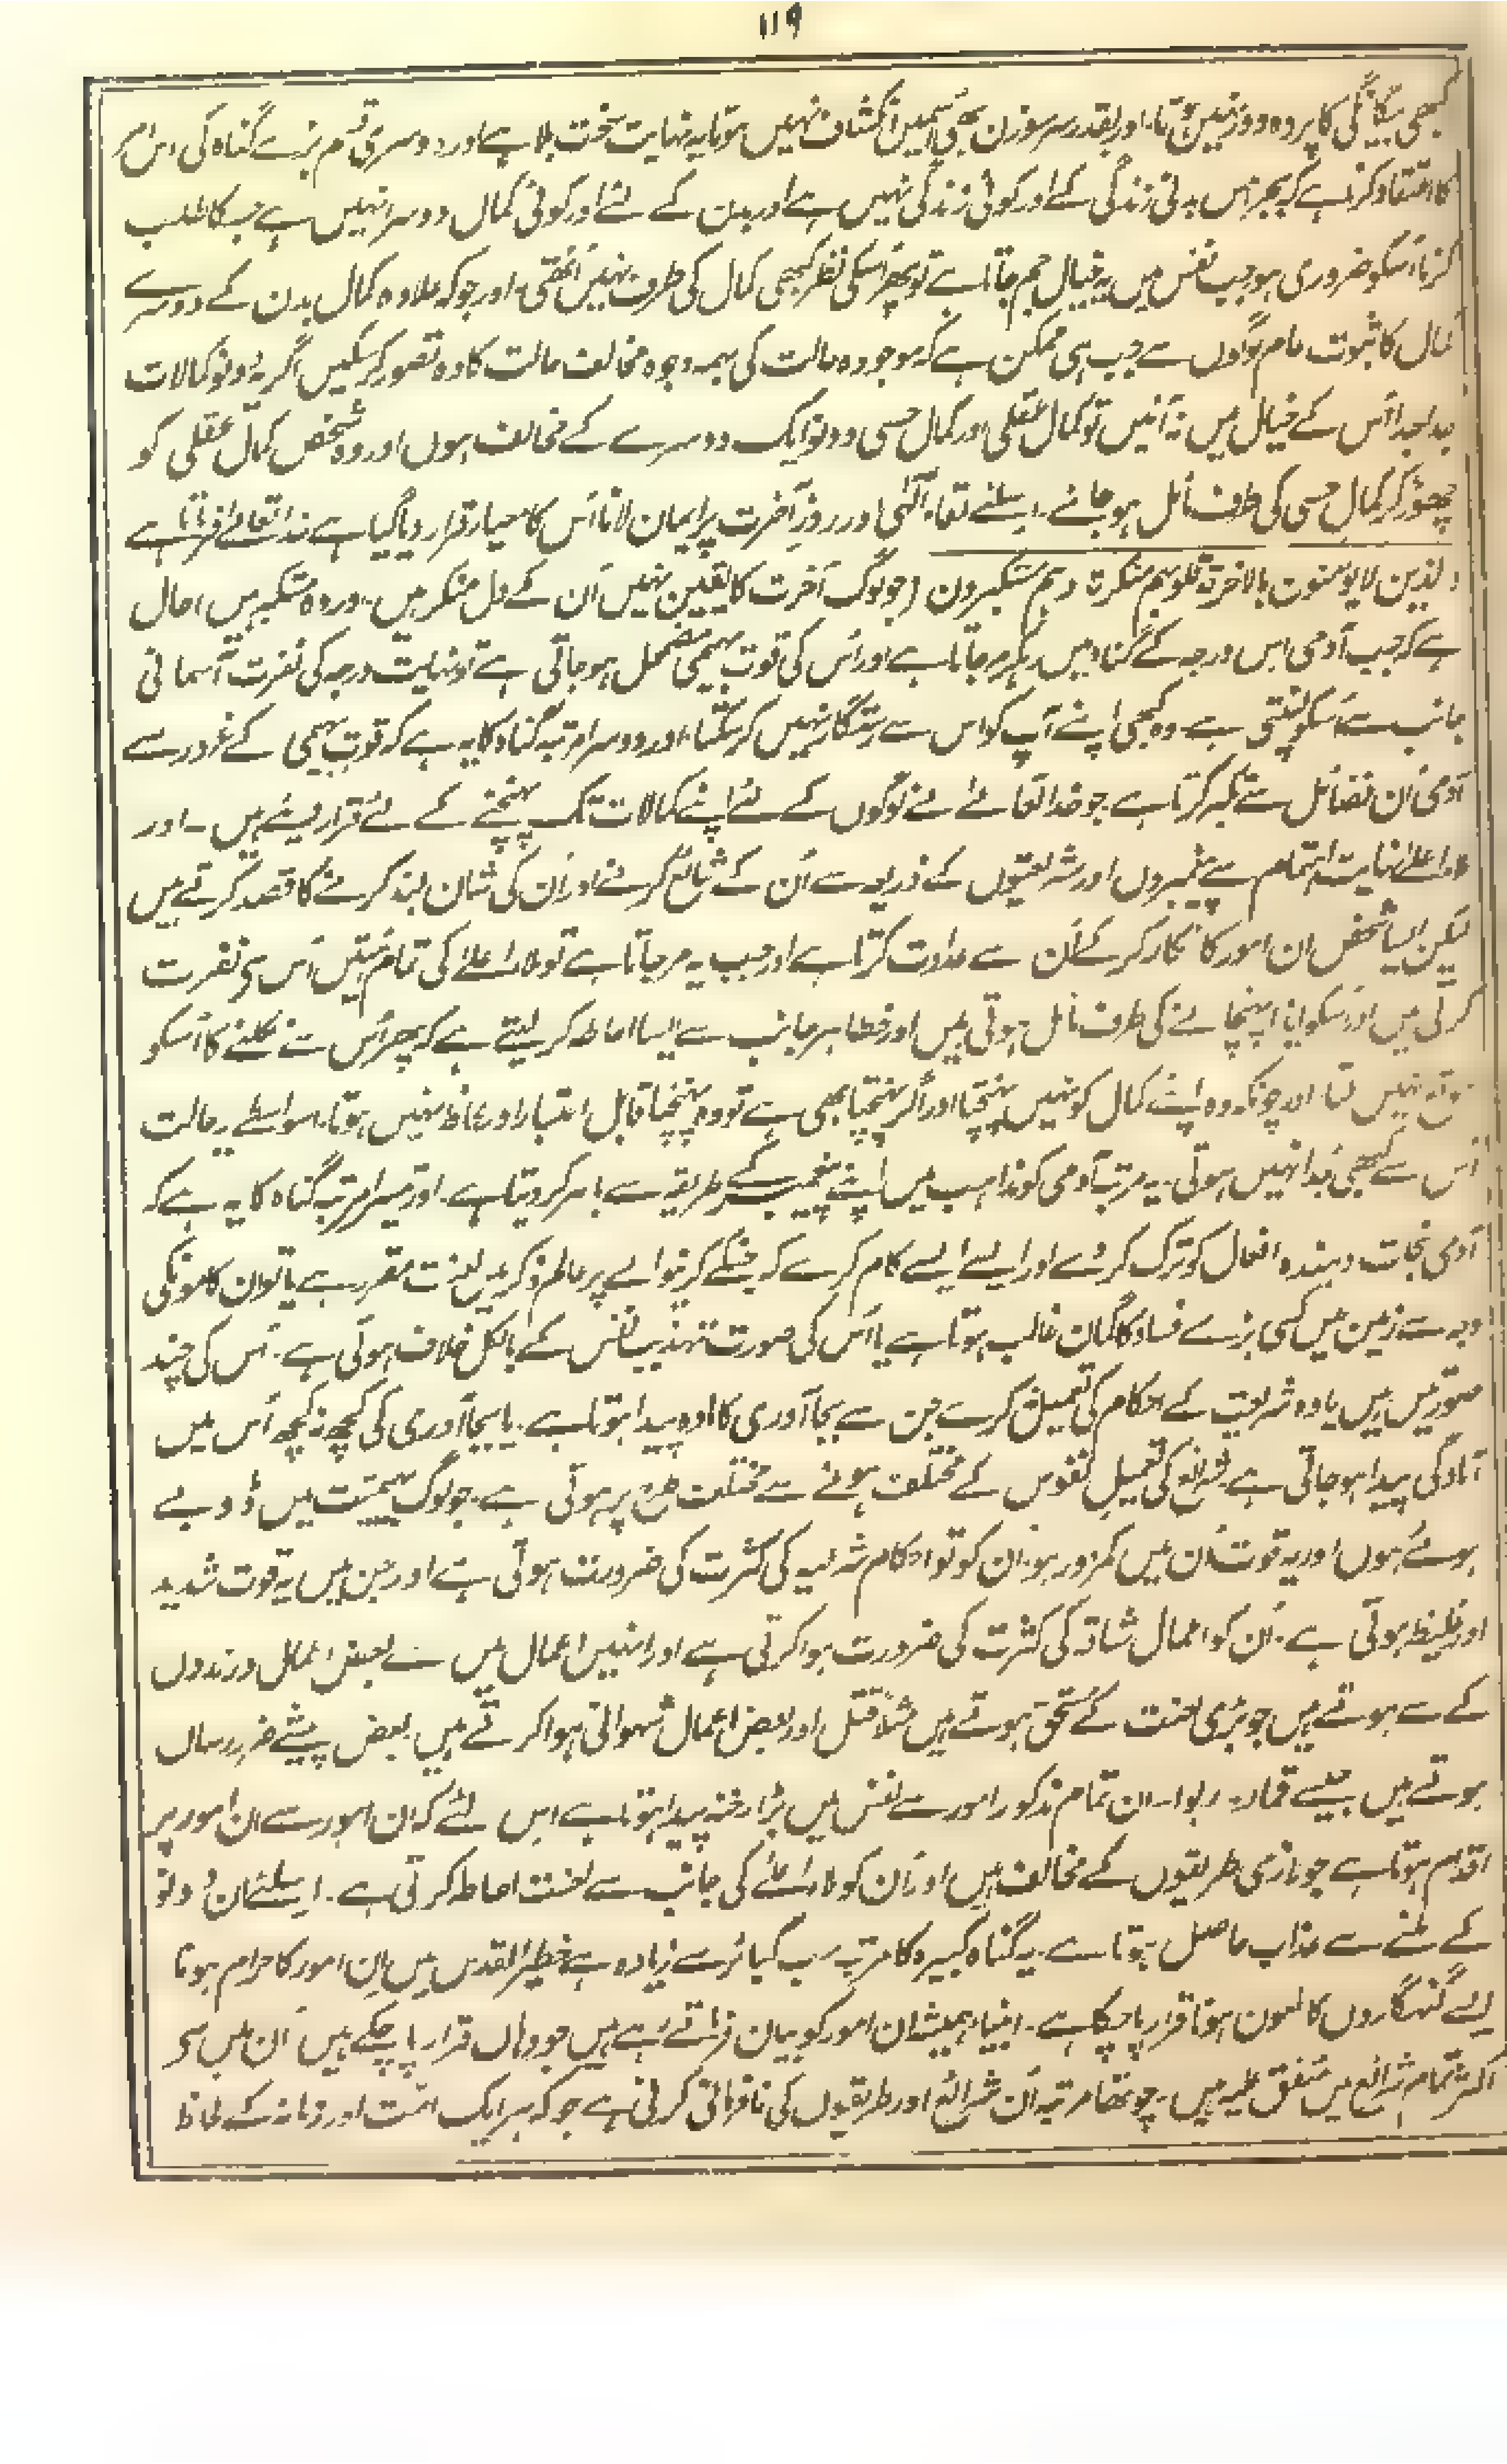 ۱۱۹
کبھی بیگانگی کا پردہ دور نہیں ہوتا۔ اور بقدر سر سوزن بھی اُسمیں انکشاف نہیں ہوتا یہ نہایت سخت بلا ہے اور دوسری قسم بڑے گناہ کی اس امر
کا اعتقاد کرنا ہے کہ بجز اس بدنی زندگی کے اور کوئی زندگی نہیں ہے اور بدن کے لئے اور کوئی کمال دوسرا نہیں ہے جس کا طلب
کرنا اُسکو ضروری ہو جب نفس میں یہ خیال جم جاتا ہے تو پھر اُسکی نظر کبھی کمال کی طرف نہیں اٹھتی۔ اور جو کہ علاوہ کمال بدن کے دوسرے
کمال کا ثبوت عام لوگوں سے جب ہی ممکن ہے کہ موجودہ حالت کی ہمہ وجوہ مخالف حالت کا وہ تصور کر سکیں اگر یہ دونو کمالات
جدا جدا اُس کے خیال میں نہ آئیں تو کمال عقلی اور کمال حسی دونو ایک دوسرے کے مخالف ہوں اور وہ شخص کمال عقلی کو
چھوڑ کر کمال حسی کی طرف مائل ہو جائے۔ اسلئے لقاء الٰہی اور روز آخرت پر ایمان لانا اُس کا معیار قرار دیا گیا ہے خدا تعالےٰ فرماتا ہے
الذین لا یومنون بالاخرۃ قلوبہم منکرۃ وہم مستکبرون (جو لوگ آخرت کا یقین نہیں اُن کے دل منکر ہیں۔ اور وہ متکبر ہیں) حاصل
ہے کہ جب آدمی اس درجہ کے گناہ میں رہکر مر جاتا ہے اور اُس کی قوت بہیمی مضمحل ہو جاتی ہے تو نہایت درجہ کی نفرت آسمانی
جانب سے اُسکو لپٹتی ہے۔ وہ کبھی اپنے آپ کو اس سے رستگار نہیں کر سکتا۔ اور دوسرا مرتبہ گناہ کا یہ ہے کہ قوت بہیمی کے غرور سے
آدمی اُن فضائل سے تکبر کرتا ہے جو خدا تعالےٰ نے لوگوں کے لئے اپنے کمالات تک پہنچنے کے لئے قرار دیئے ہیں۔ اور
ملاء اعلےٰ نہایت اہتمام سے پیغمبروں اور شریعتوں کے ذریعہ سے اُن کے شائع کرنے اور اُن کی شان بلند کرنے کا قصد کرتے ہیں
لیکن ایسا شخص ان امور کا انکار کر کے اُن سے عداوت کرتا ہے اور جب یہ مر جاتا ہے تو ملاء اعلےٰ کی تمام ہمتیں اُس سے نفرت
کرتی ہیں اور اُسکو ایذا پہنچانے کی طرف مائل ہوتی ہیں اور خطا ہر جانب سے ایسا احاطہ کر لیتے ہے کہ پھر اُس سے نکلنے کا اُسکو
موقع نہیں ملتا۔ اور چونکہ وہ اپنے کمال کو نہیں پہنچتا اور اگر پہنچتا بھی ہے تو وہ پہنچنا قابل اعتبار اور لحاظ نہیں ہوتا۔ اسواسطے یہ حالت
اُس سے کبھی جدا نہیں ہوتی۔ یہ مرتبہ آدمی کو مذاہب میں اپنے پیغمبر کے طریقہ سے باہر کر دیتا ہے۔ اور تیسرا مرتبہ گناہ کا یہ ہے کہ
آدمی نجات دہندہ افعال کو ترک کر دے اور ایسے ایسے کام کرے کہ جنکے کرنیوالے پر عالم ذکر میں لعنت مقرر ہے یا تو ان کاموں کی
وجہ سے زمین میں کسی بڑے فساد کا گمان غالب ہوتا ہے یا اُس کی صورت تہذیب نفس کے بالکل خلاف ہوتی ہے۔ اُس کی چند
صورتیں ہیں یا وہ شریعت کے احکام کی تعمیل نہ کرے جن سے بجا آوری کا مادہ پیدا ہوتا ہے۔ یا بجا آوری کی کچھ نہ کچھ اُس میں
آمادگی پیدا ہو جاتی ہے۔ شرائع کی تعمیل نفوس کے مختلف ہونے سے مختلف طرح پر ہوتی ہے۔ جو لوگ بہیمیت میں ڈوبے
ہوئے ہوں اور یہ قوت اُن میں کمزور ہو۔ ان کو تو احکام شرعیہ کی کثرت کی ضرورت ہوتی ہے اور جن میں یہ قوت شدید
اور غلیظ ہوتی ہے۔ اُن کو اعمال شاقہ کی کثرت کی ضرورت ہوا کرتی ہے اور انہیں اعمال میں سے بعض اعمال درندوں
کے سے ہوتے ہیں جو بڑی لعنت کے مستحق ہوتے ہیں مثلاً قتل اور بعض اعمال شہوانی ہوا کرتے ہیں۔ بعض پیشے ضرر رساں
ہوتے ہیں جیسے قمار۔ ربوا۔ ان تمام مذکور امور سے نفس میں بڑا رخنہ پیدا ہوتا ہے اس لئے کہ ان امور سے ان امور پر
اقدام ہوتا ہے جو لازمی طریقوں کے مخالف ہیں اور اُن کو ملاء اعلےٰ کی جانب سے لعنت احاطہ کرتی ہے۔ اسلئے ان دونو
کے ملنے سے عذاب حاصل ہوتا ہے۔ یہ گناہ کبیرہ کا مرتبہ سب کبائر سے زیادہ ہے حظیرۃ القدس میں ان امور کا حرام ہونا
ایسے گنہگاروں کا ملعون ہونا قرار پا چکا ہے۔ انبیاء ہمیشہ ان امور کو بیان فرماتے رہے ہیں جو وہاں قرار پا چکے ہیں اُن میں سے
اکثر تمام شرائع میں متفق علیہ ہیں۔ چوتھا مرتبہ اُن شرائع اور طریقوں کی نافرمانی کرنی ہے جو کہ ہر ایک امت اور زمانہ کے لحاظ